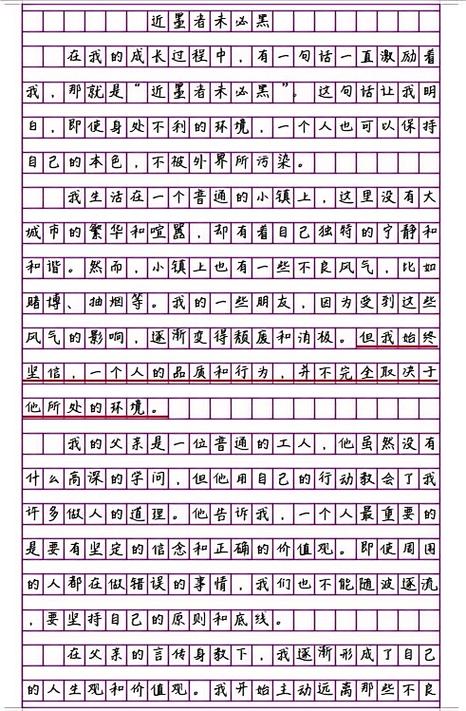 近墨者未必黑
在我的成长过程中，有一句话一直激励着
我，那就是“近墨者未必黑”。这句话让我明
白，即使身处不利的环境，一个人也可以保持
自己的本色，不被外界所污染。
我生活在一个普通的小镇上，这里没有大
城市的繁华和喧嚣，却有着自己独特的宁静和
和谐。然而，小镇上也有一些不良风气，比如
赌博、抽烟等。我的一些朋友，因为受到这些
风气的影响，逐渐变得颓废和消极。但我始终
坚信，一个人的品质和行为，并不完全取决于
他所处的环境。
我的父亲是一位普通的工人，他虽然没有
什么高深的学问，但他用自己的行动教会了我
许多做人的道理。他告诉我，一个人最重要的
是要有坚定的信念和正确的价值观。即使周围
的人都在做错误的事情，我们也不能随波逐流
，要坚持自己的原则和底线。
在父亲的言传身教下，我逐渐形成了自己
的人生观和价值观。我开始主动远离那些不良